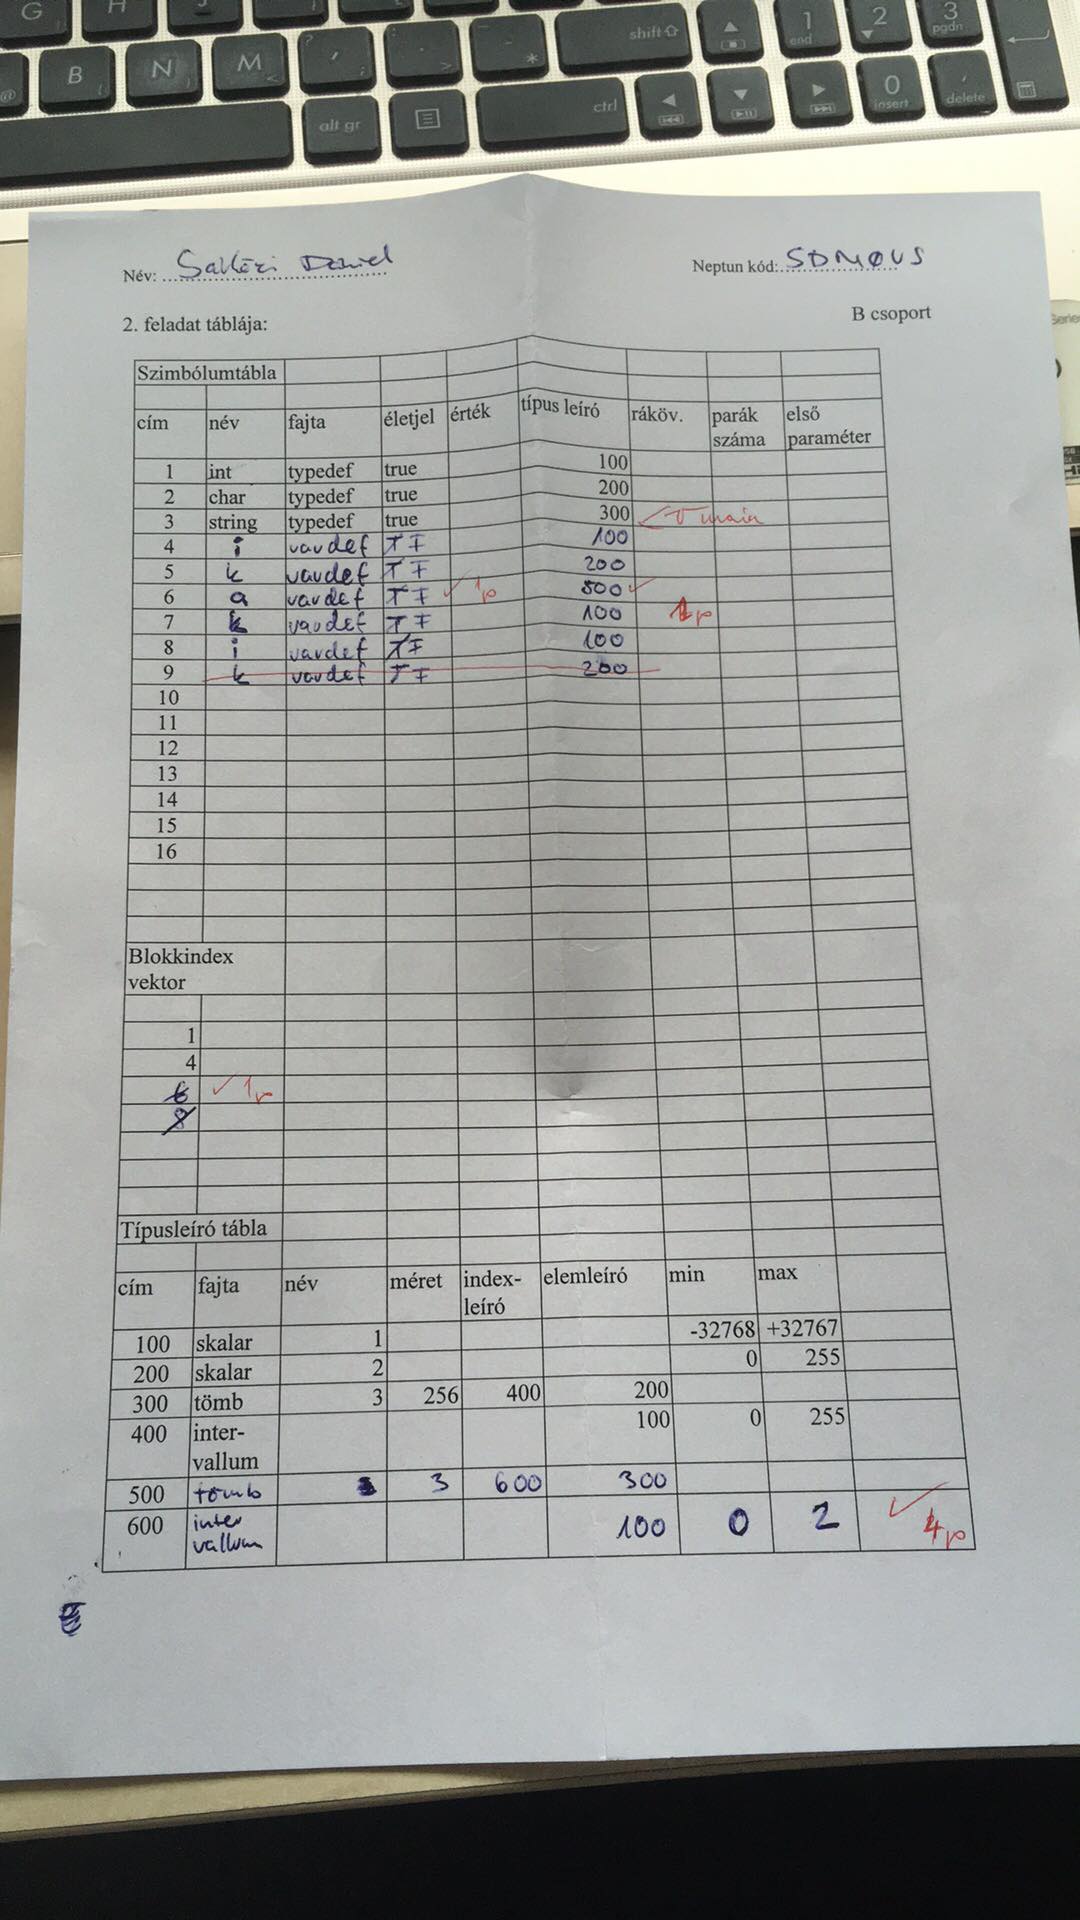 G H J
B N M < , ; . > - * shift 1 end 2 3 pgdn
@ alt gr ctrl 0 insert , delete
Név: Daniel
Neptun kód: SDMØUS
2. feladat táblája:
B csoport
Szimbólumtábla
cím név fajta életjel érték típus leíró ráköv. parák száma első paraméter
1 int typedef true 100
2 char typedef true 200
3 string typedef true 300 main
4 i vardef T F 100
5 k vardef T F 200
6 a vardef T F ✓ 1p 500 ✓
7 k vardef T F 100 1p
8 i vardef T F 100
9 k vardef T F 200
10
11
12
13
14
15
16
Blokkindex
vektor
1
4
6 ✓ 1p
8
Típusleíró tábla
cím fajta név méret index-leíró elemleíró min max
100 skalar 1 -32768 +32767
200 skalar 2 0 255
300 tömb 3 256 400 200
400 inter-vallum 100 0 255
500 tömb 3 600 300
600 inter vallum 100 0 2 ✓ 4p